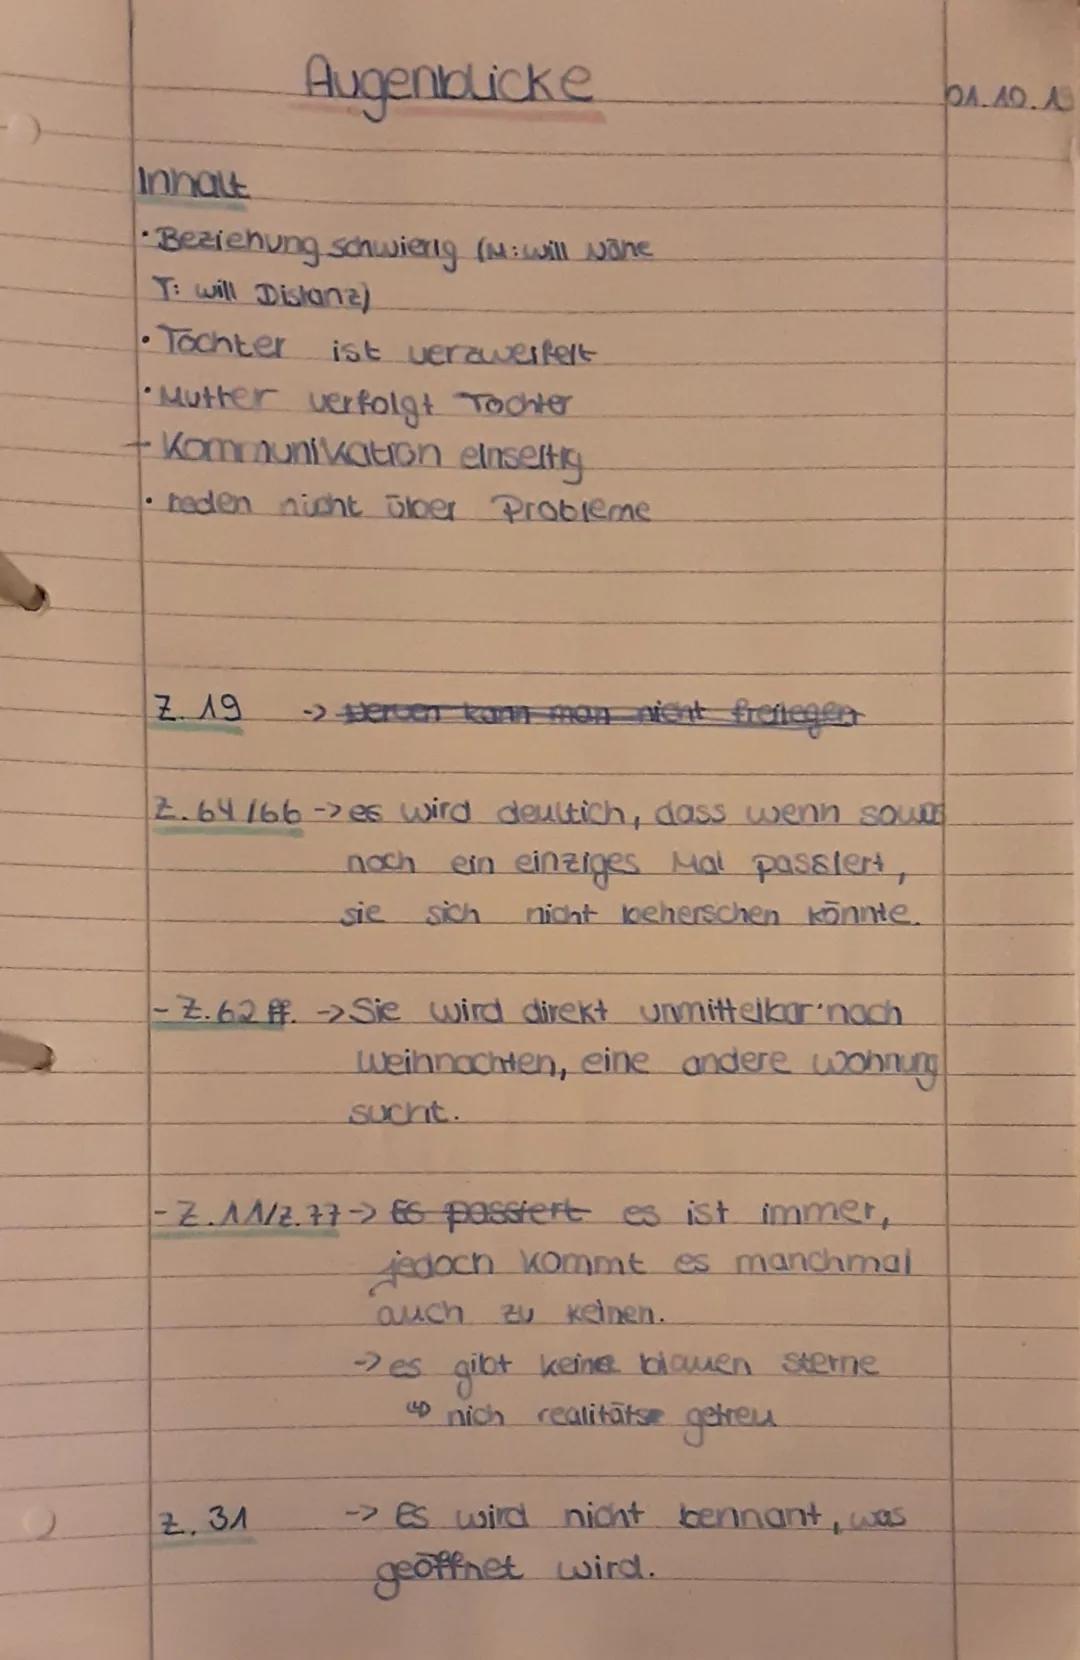 Augenblicke
01.10.1
Inhalt
• Beziehung schwierig (M: will Nähe
T: will Distanz)
• Tochter ist verzweifelt
• Mutter verfolgt Tochter
- Kommunikation einseitig
• reden nicht über Probleme
Z. 19 -> Nerven kann man nicht freilegen
Z. 64/66 -> es wird deultich, dass wenn
noch ein einziges Mal passiert,
sie sich nicht beherschen könnte.
- Z. 62 ff. -> Sie wird direkt unmittelbar nach
Weihnachten, eine andere Wohnung
sucht.
- Z. 11/Z. 77 -> Es passiert es ist immer,
jedoch kommt es manchmal
auch zu keinen.
-> es gibt keine blauen Sterne
nich realitätse getreu
Z. 31 -> Es wird nicht bennant, was
geöffnet wird.